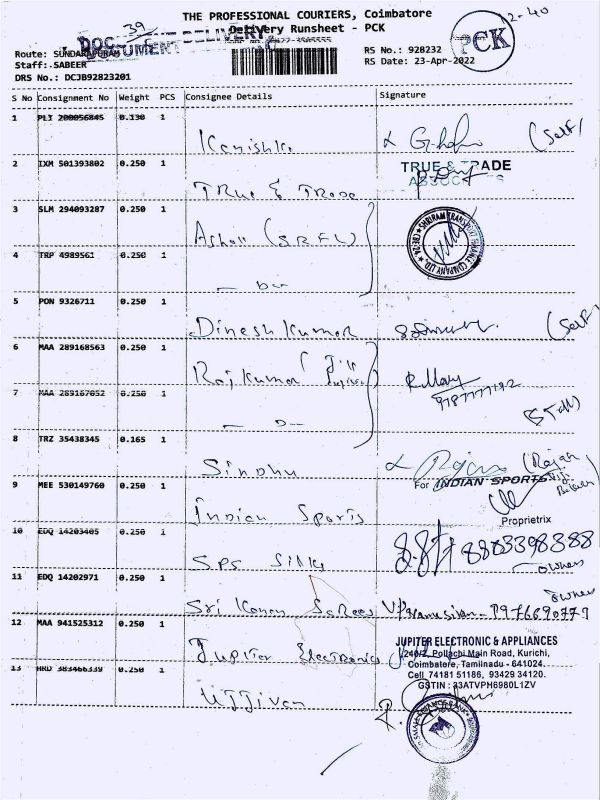 39
12-40
THE PROFESSIONAL COURIERS, Coimbatore
Delivery Runsheet - PCK
DOCUMENT
PCK
Route: SUNDARAPURAM
Staff: SABEER
DRS No.: DCJB92823201
RS No.: 928232
RS Date: 23-Apr-2022
S No Consignment No Weight PCS Consignee Details Signature
1 PLI 200056845 0.130 1 Kanishka (Self)
2 IXM 501393802 0.250 1 True & Trade
TRUE & TRADE
ASSOCIATES
3 SLM 294093287 0.250 1 Ashok (SRFL)
SHRIRAM TRANSPORT FINANCE COMPANY LTD.
4 TRP 4989561 0.250 1 - Do -
5 PON 9326711 0.250 1 Dinesh Kumar (Self)
6 MAA 289168563 0.250 1 Raj Kumar R. Mary
9787777192
7 MAA 289167052 0.250 1 - D -
8 TRZ 35438345 0.165 1 Sindhu Rajan (Rajan
9 MEE 530149760 0.250 1 Indian Sports
For INDIAN SPORTS
Proprietrix
10 EDQ 14203405 0.250 1 SPS Silks 8883398388
owner
11 EDQ 14202971 0.250 1 Sri Kanan Sarees
owner
12 MAA 941525312 0.250 1 Jupiter Electronics
JUPITER ELECTRONIC & APPLIANCES
240/2, Pollachi Main Road, Kurichi,
Coimbatore, Tamilnadu - 641024.
Cell 74181 51186, 93429 34120.
GSTIN : 33ATVPH6980L1ZV
13 HRD 383466339 0.250 1 Ujjivan